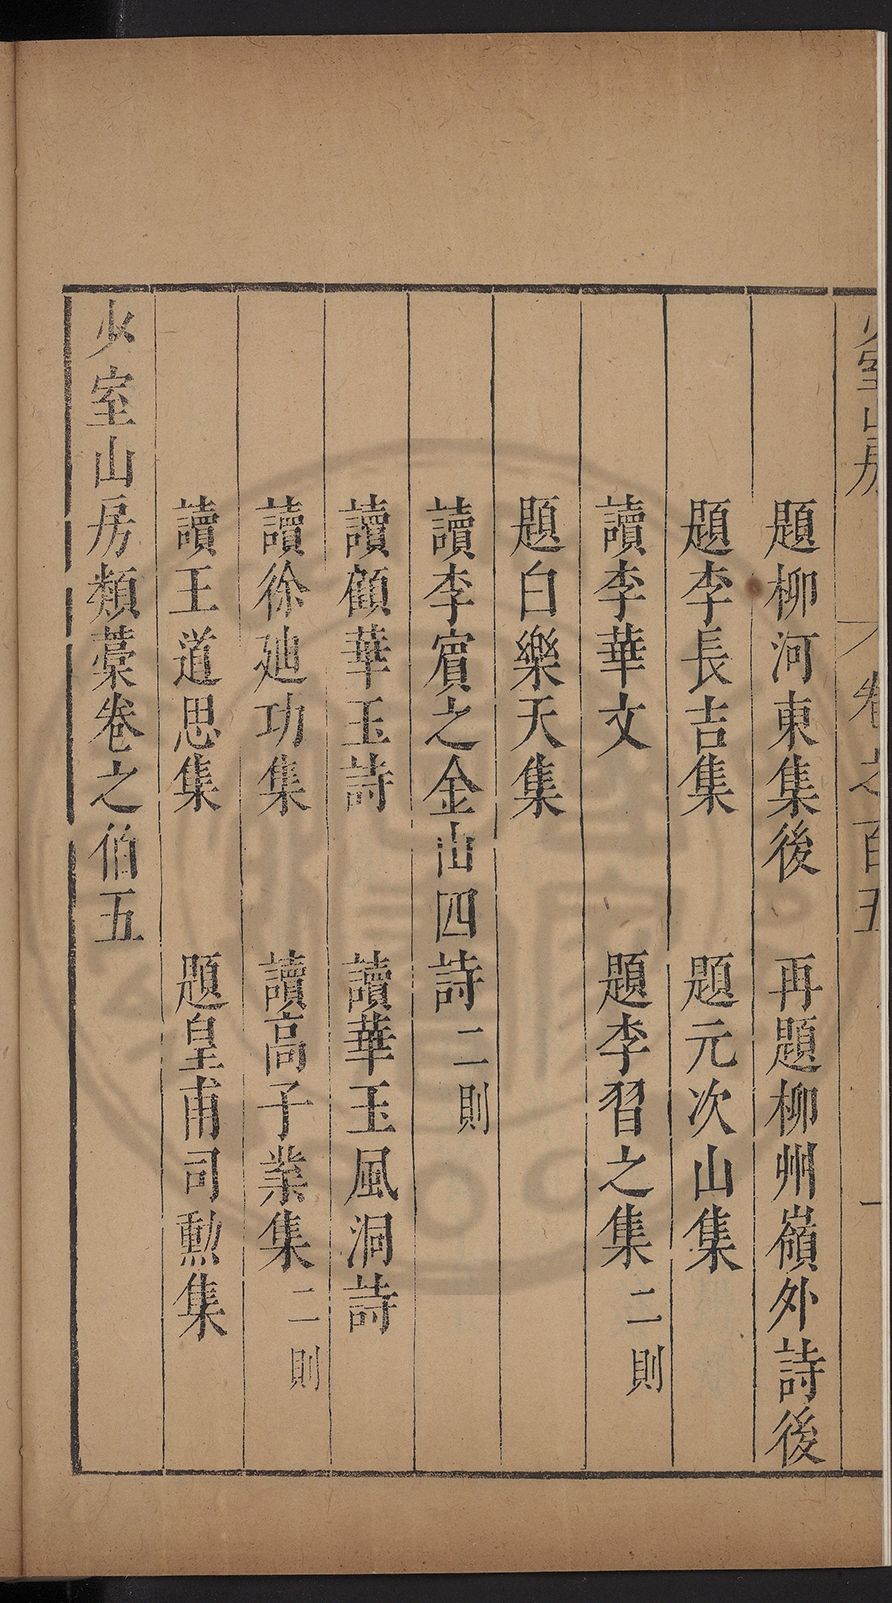 少室山房
卷之百五
一
題柳河東集後　再題柳州嶺外詩後
題李長吉集　題元次山集
讀李華文　題李習之集二則
題白樂天集
讀李賓之金山四詩二則
讀顧華玉詩　讀華玉風洞詩
讀徐廸功集　讀高子業集二則
讀王道思集　題皇甫司勲集
少室山房類藁卷之伯五